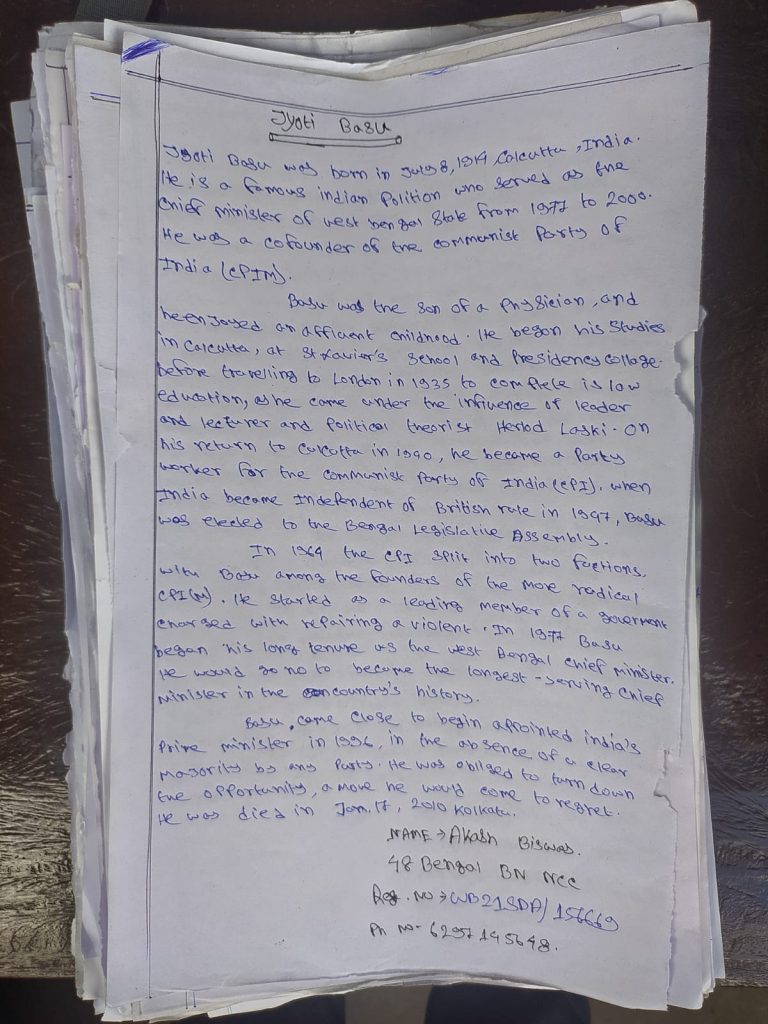 Jyoti Basu
Jyoti Basu was born in July 8, 1914 Calcutta, India.
He is a famous indian Polition who served as the
Chief minister of west bengal State from 1977 to 2000.
He was a cofounder of the communist Party of
India (CPIM).
Basu was the son of a Physician, and
heenjoyed an affluent childhood. He began his studies
in Calcutta, at St Xavier's School and Presidency Collage
before travelling to London in 1935 to complete is law
education, as he came under the influence of leader
and lecturer and Political theorist Herlod Laski. On
his return to Culcutta in 1940, he became a Party
worker for the communist Party of India (CPI). when
India became Independent of British rule in 1947, Basu
was elected to the Bengal Legislative Assembly.
In 1964 the CPI split into two factions,
with Basu among the founders of the more radical
CPI(M). He started as a leading member of a goverment
charged with repairing a violent. In 1977 Basu
began his long tenure as the west Bengal Chief Minister.
He would go no to become the longest-serving Chief
Minister in the country's history.
Basu, came close to begin appointed india's
Prime minister in 1996, in the absence of a clear
majority by any Party. He was obliged to turn down
the opportunity, a move he would come to regret.
He was died in Jan. 17, 2010 Kolkatu.
NAME → Akash Biswas.
48 Bengal BN NCC
Reg. No → WB21SDA/156669
Ph no- 6297145648.